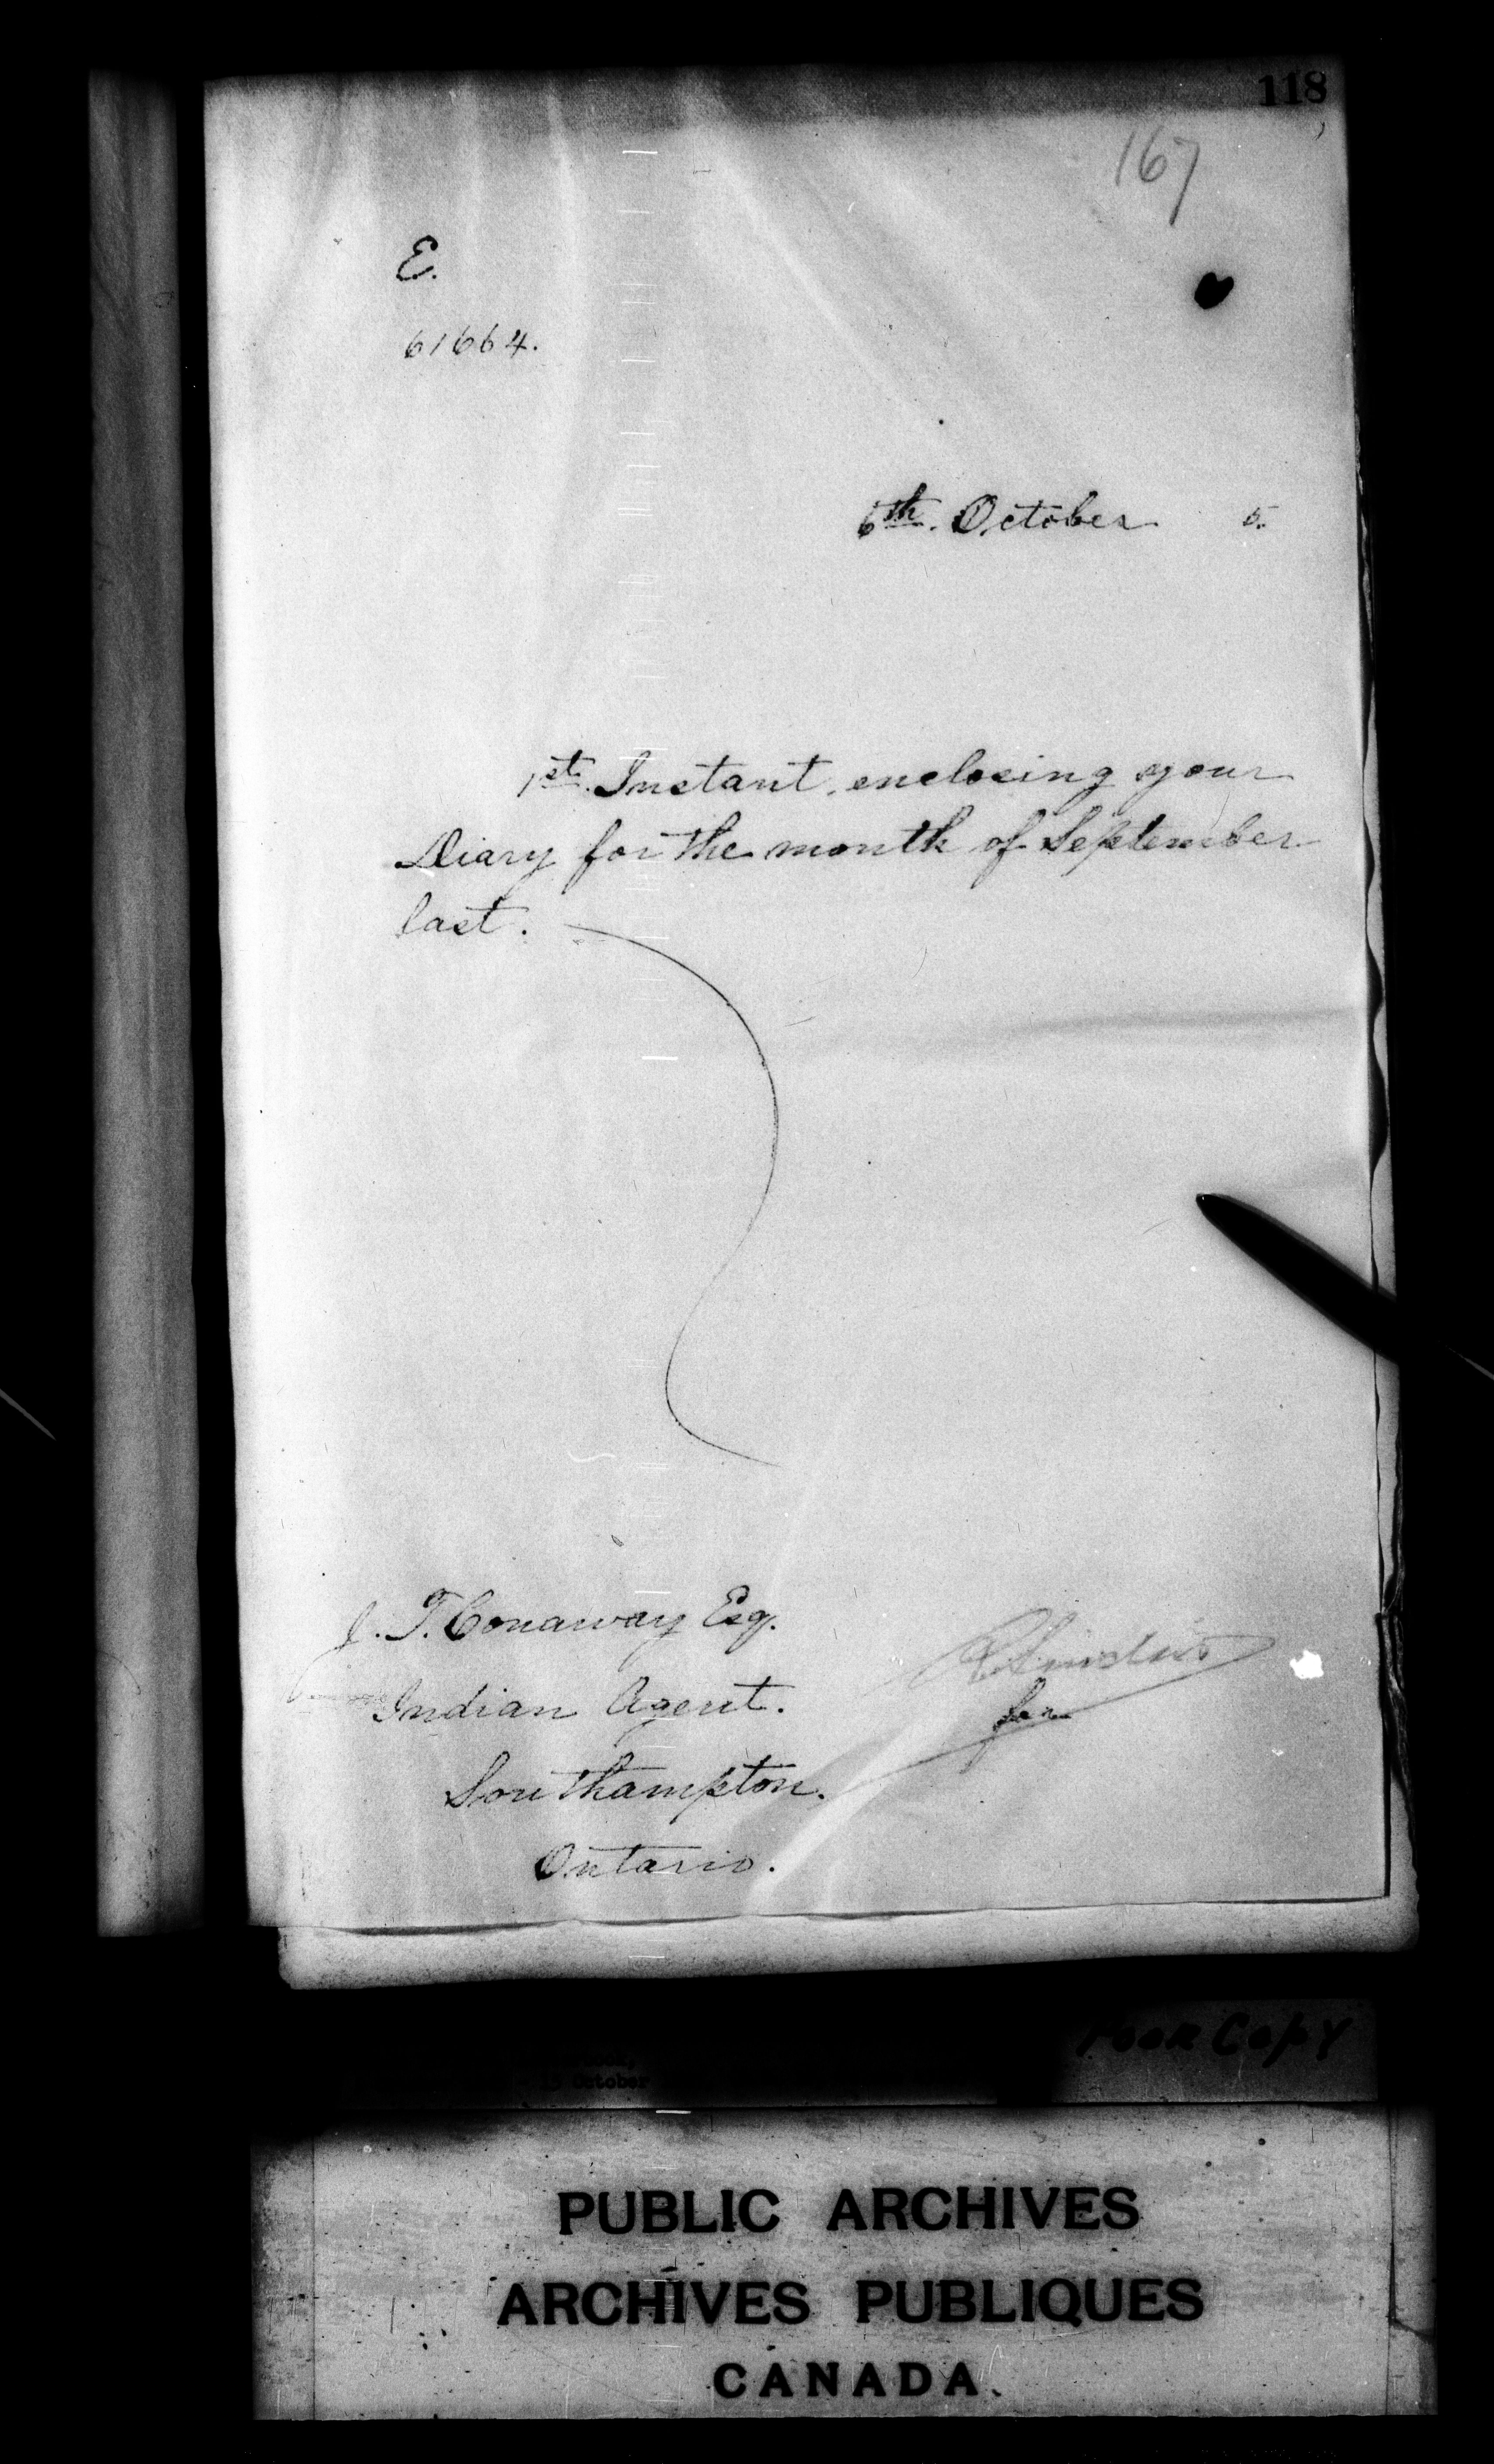 118
167
E.
61664.
6th. October 5.
1st. Instant, enclosing your
Diary for the month of September
last.
J. T. Conaway Esq.
Indian Agent.
Southampton.
Ontario.
for
Poor Copy
15 October
PUBLIC ARCHIVES
ARCHIVES PUBLIQUES
CANADA